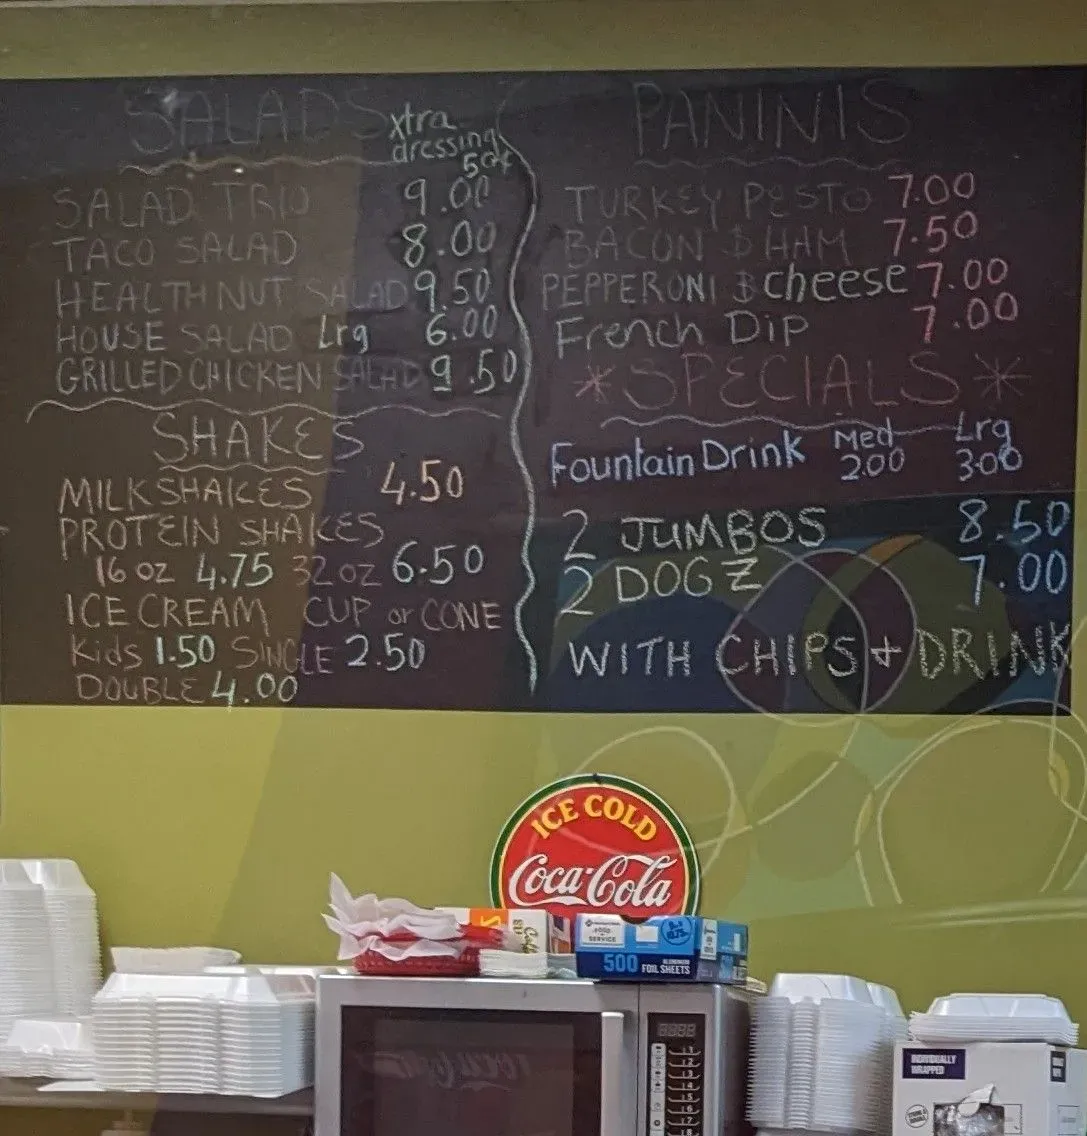 SALADS xtra
dressing
50¢
SALAD TRIO 9.00
TACO SALAD 8.00
HEALTHNUT SALAD 9.50
HOUSE SALAD Lrg 6.00
GRILLED CHICKEN SALAD 9.50
SHAKES
MILKSHAKES 4.50
PROTEIN SHAKES
16 oz 4.75 32 oz 6.50
ICE CREAM CUP or CONE
Kids 1.50 SINGLE 2.50
DOUBLE 4.00
PANINIS
TURKEY PESTO 7.00
BACON & HAM 7.50
PEPPERONI & cheese 7.00
French Dip 7.00
*SPECIALS*
Fountain Drink Med Lrg
2.00 3.00
2 JUMBOS 8.50
2 DOGZ 7.00
WITH CHIPS & DRINK
ICE COLD
Coca-Cola
SERVICE
500 FOIL SHEETS
INDIVIDUALLY
WRAPPED